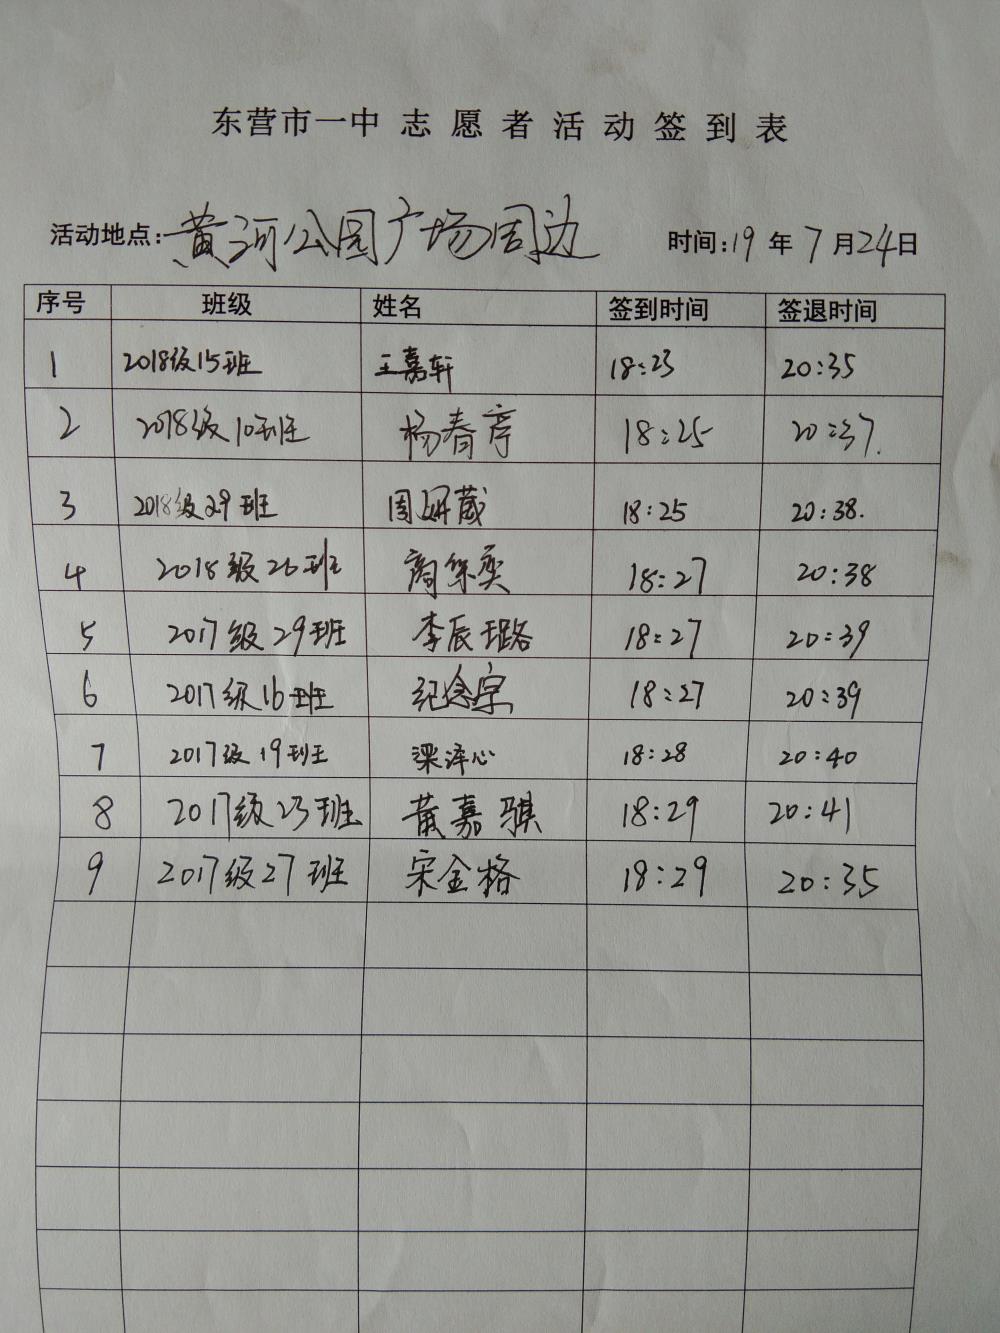 东营市一中志愿者活动签到表
活动地点:黄河公园广场周边 时间:19年7月24日
序号 班级 姓名 签到时间 签退时间
1 2018级15班 王嘉轩 18:23 20:35
2 2018级10班 杨春亭 18:25 20:37.
3 2018级29班 周妍葳 18:25 20:38.
4 2018级26班 18:27 20:38
5 2017级29班 李辰璐 18:27 20:39
6 2017级16班 18:27 20:39
7 2017级19班 梁泽心 18:28 20:40
8 2017级23班 黄嘉骐 18:29 20:41
9 2017级27班 宋金格 18:29 20:35